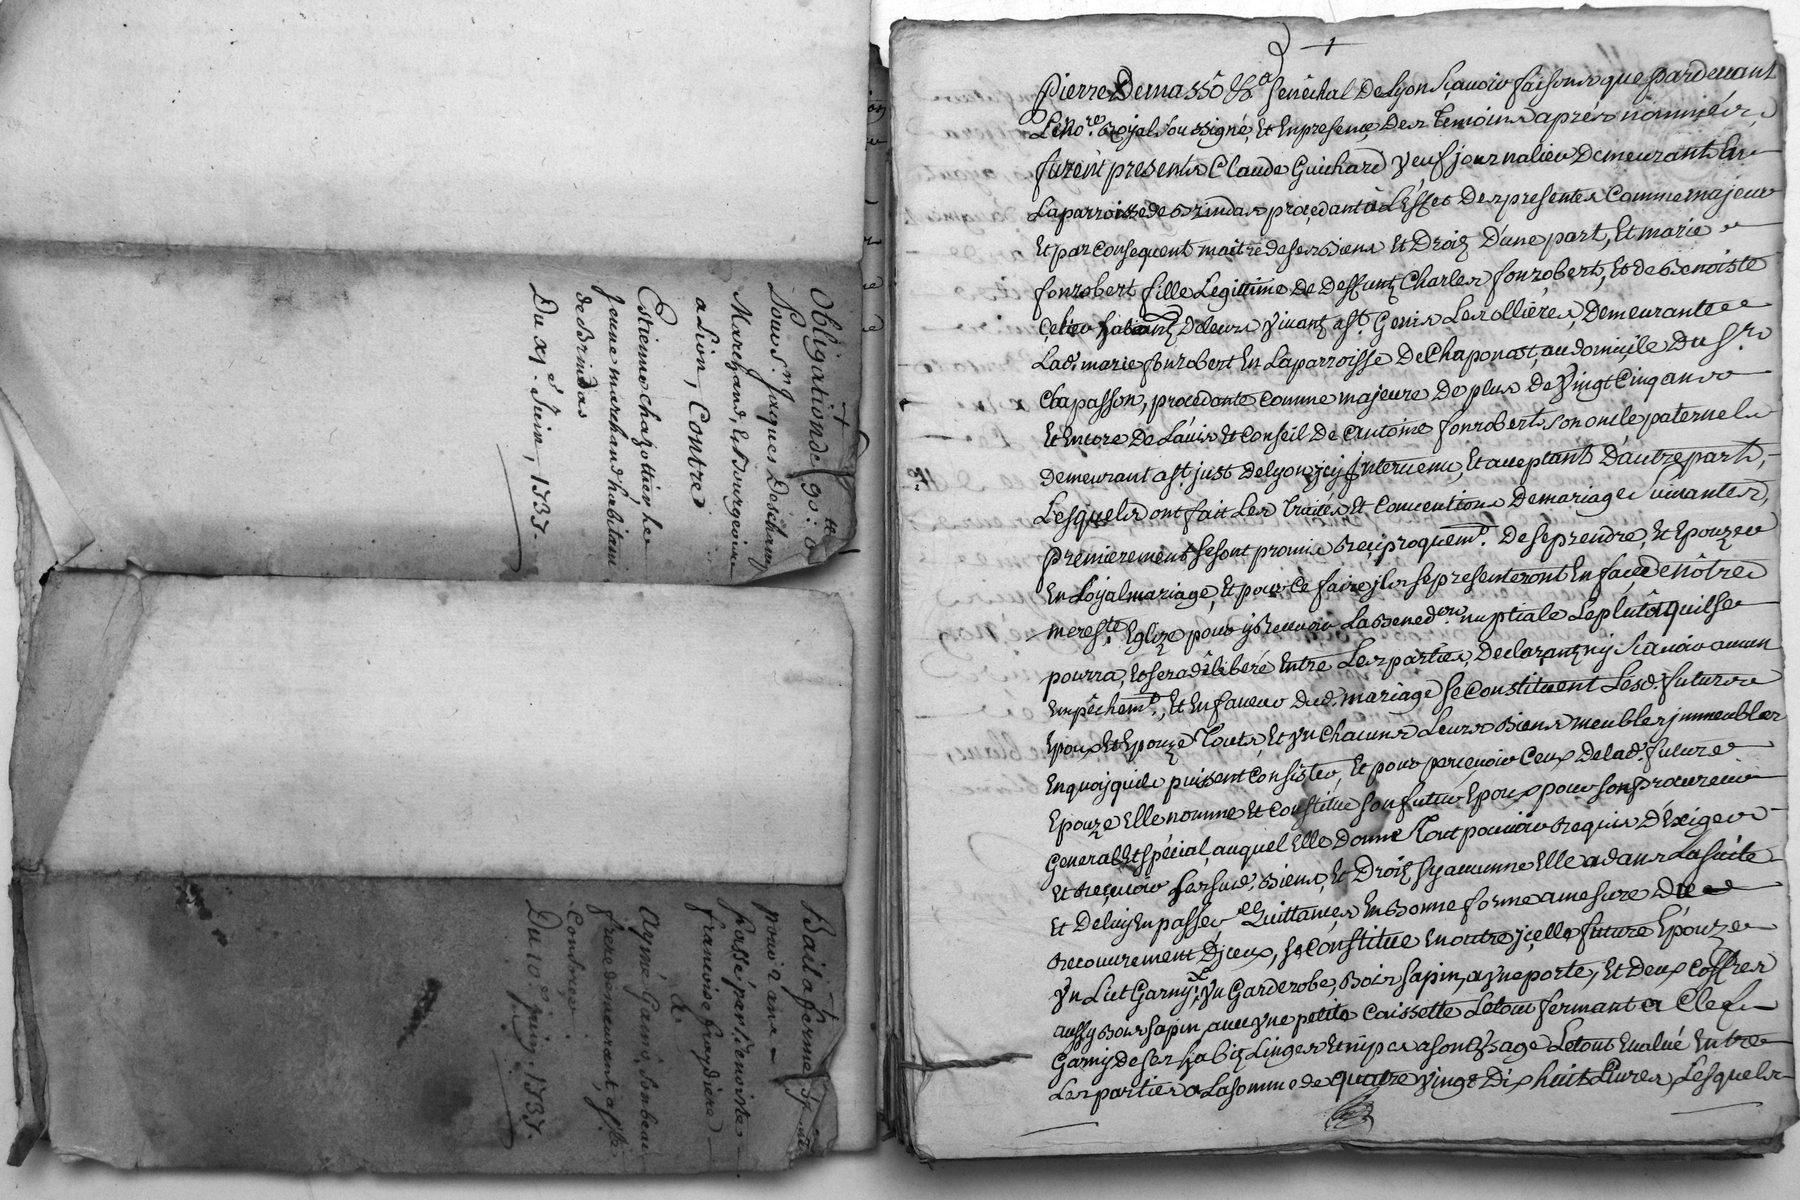 Obligation de 90# 0
Pour Sr. Jacques Deschamp
Marchand, Et Bourgeois
a Lion, Contre
Estienne chazottier, le
Jeune marchand habitant
de Brindas
Du xje. Juin, 1737.
Bail a ferme
pour 2 ans
Passé par Benoiste
francoise
A.
Aymé Gamo, son beau
frere demeurant, a Ste
Consorce
Du 10e. juin 1737.
Pierre Demasso &a. senêchal De Lyon sçavoir faisons que pardevant
Le No.re Royal soussigné, Et En presence Des temoins aprés nommés,
furent presents Claude Guichard veuf journalier Demeurant En
La parroisse de Brindas procedant à L'effet Des presentes Comme majeur
Et par consequent maitre de ses Biens Et Droits D'une part, Et marie
fonrobert fille Legitime De Deffunt Charles fonrobert, Et de Benoiste
vivants a st. Genis Les ollières, Demeurante
Lad. marie fonrobert En La parroisse De Chaponost, au domicile Du Sr.
Chapasson, procedante comme majeure De plus De vingt Cinq ans
Et Encore De L'avis Et Conseil De Antoine fonrobert son oncle paternel
demeurant a st. just De lyon jcy jntervenu, Et acceptant D'autre part,
Lesquels ont fait Les traités Et Conventions De mariage suivantes,
premierement se sont promis Reciproquemt. De se prendre, Et Epouzer
En Loyal mariage, Et pour ce faire jls se presenteront En face de nôtre
mere ste. Eglize pour y Recevoir La Bened.on nuptiale Le plutôt qu'il se
pourra, Et sera délibéré Entre Les parties, Declarants ny sçavoir aucun
Empêchemt., Et En faveur Dud. mariage se Constituent Lesd. futurs
Epoux Et Epouze Touts Et vn chacuns Leurs Biens meubles jmmeubles
En quoy qu'ils puissent Consister, Et pour percevoir Ceux De lad. future
Epouze Elle nomme Et Constitue son futur Epoux pour son procureur
General Et spécial, auquel Elle Donne Tout pouvoir Requis D'Exiger
Et Recevoir sesd. Biens, Et Droits sy aucunne Elle a dans La suite
Et De luy En passer Quittances En Bonne forme a mesure De
Recouvrement D'jceux, se Constitue En outre jcelle future Epouze
vn Lict Garny, vn Garderobe, Bois sapin, a vne porte, Et deux Coffres
aussy Bois sapin, avec vne petite caissette Le tout fermant a Clef
Garny de ses habits Linges Et nipes a son vsage Le tout Evalué Entre
Les parties a La somme de quatre vingt Dix huit Livres, Lesquels